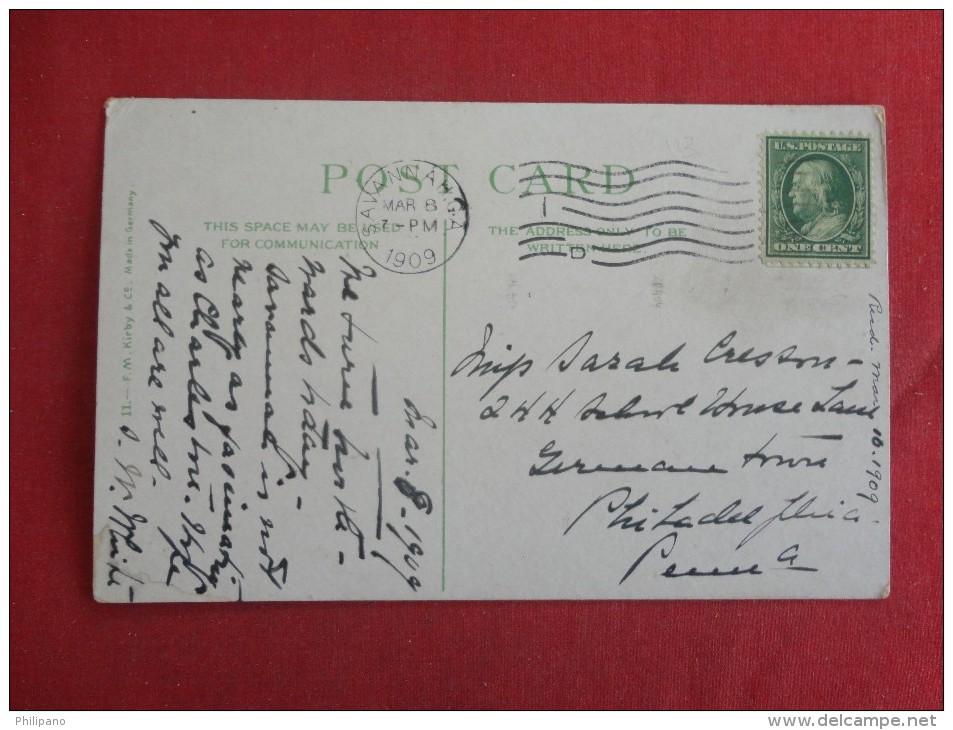 POST CARD
THIS SPACE MAY BE USED
FOR COMMUNICATION
THE ADDRESS ONLY TO BE
WRITTEN HERE
SAVANNAH, GA
MAR 8
7-PM
1909
D
U.S. POSTAGE
ONE CENT
11.— F.M. Kirby & Co. Made in Germany.
Mar. 8-1909
We turn
wards today-
Savannah is not
nearly as fascinating
as Charleston. Hope
you all are well.
Miss Sarah
244 School House Lane
Germantown
Philadelphia.
Penna
Recd. Mar 10.1909
Philipano
www.delcampe.net